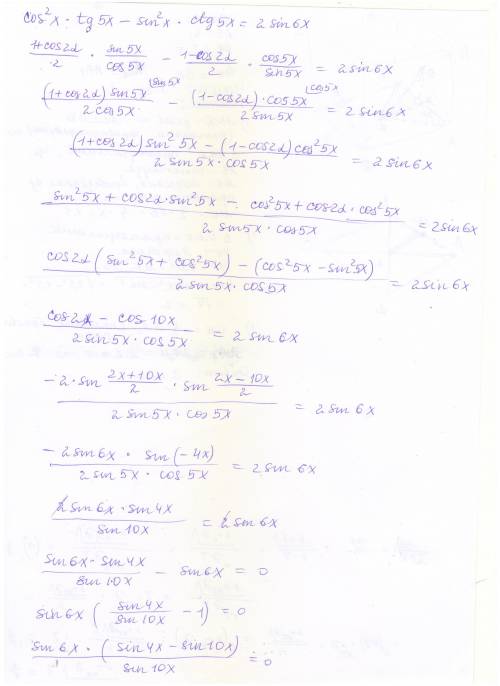 cos²x · tg 5x − sin²x · ctg 5x = 2 sin 6x
(1+cos2α)/2 · sin 5x/cos 5x − (1−cos2α)/2 · cos5x/sin5x = 2 sin 6x
((1+cos2α) sin 5x)/(2 cos 5x) (sin 5x − ((1−cos2α)·cos 5x)/(2 sin 5x) (cos 5x = 2 sin 6x
((1+cos2α) sin² 5x − (1−cos2α) cos² 5x)/(2 sin 5x · cos 5x) = 2 sin 6x
(sin² 5x + cos2α · sin² 5x − cos² 5x + cos2α · cos² 5x)/(2 sin5x · cos5x) = 2 sin 6x
(cos2α (sin² 5x + cos² 5x) − (cos² 5x − sin² 5x))/(2 sin 5x · cos 5x) = 2 sin 6x
(cos 2x − cos 10x)/(2 sin 5x · cos 5x) = 2 sin 6x
(−2 · sin (2x+10x)/2 · sin (2x−10x)/2)/(2 sin 5x · cos 5x) = 2 sin 6x
(−2 sin 6x · sin (−4x))/(2 sin 5x · cos 5x) = 2 sin 6x
(2 sin 6x · sin 4x)/(sin 10x) = 2 sin 6x
(sin 6x · sin 4x)/(sin 10x) − sin 6x = 0
sin 6x (sin 4x/sin 10x − 1) = 0
(sin 6x · (sin 4x − sin 10x))/(sin 10x) = 0